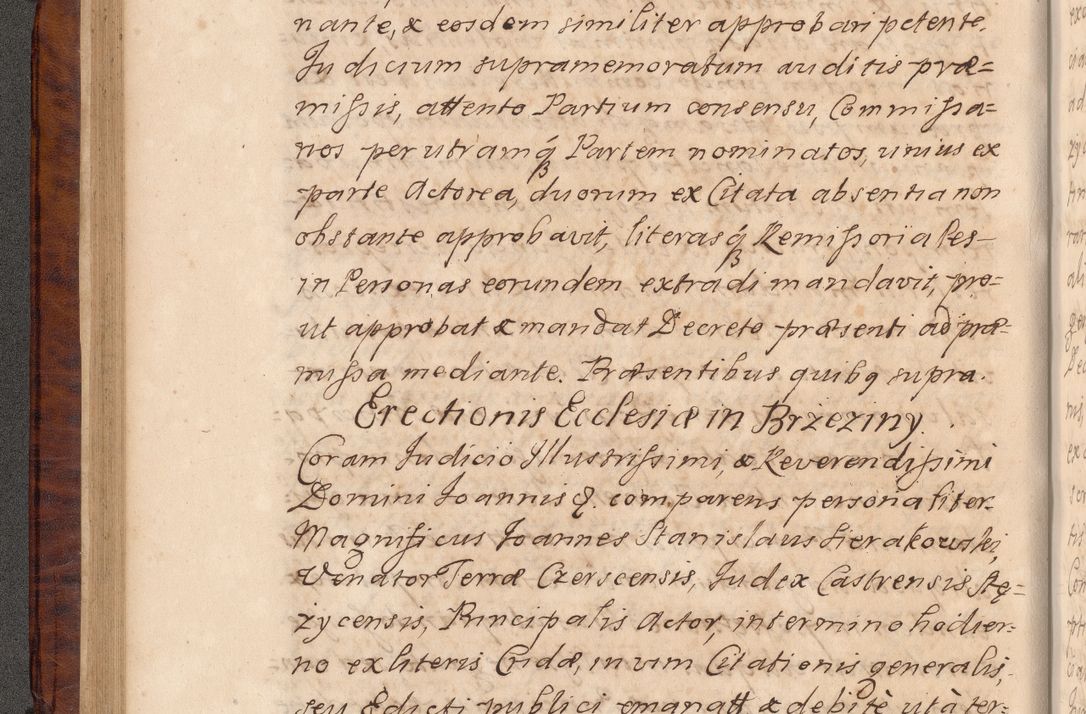 nante, & eosdem similiter approbari petente.
Judicium supramemoratum auditis præ=
missis, attento Partium consensu, Commissa=
rios per utramq́ Partem nominatos, unius ex
parte Actorea, duorum ex Citata absentia non
obstante approbavit, literasq́ Remissoriales
in Personas eorundem extradi mandavit, pro=
ut approbat & mandat Decreto præsenti ad præ=
missa mediante. Præsentibus quibq supra.
Erectionis Ecclesiæ in Brżeziny.
Coram Judicio Illustrissimi, & Reverendissimi
Domini Joannis &. comparens personaliter
Magnificus Joannes Stanislaus Sierakowski,
Venator Terræ Czerscensis, Judex Castrensis Stę=
zycensis, Principalis Actor, in termino hodier=
no ex literis Cridæ, in vim Citationis generalis,
seu Edicti publici emanatt & debitè utà ter=